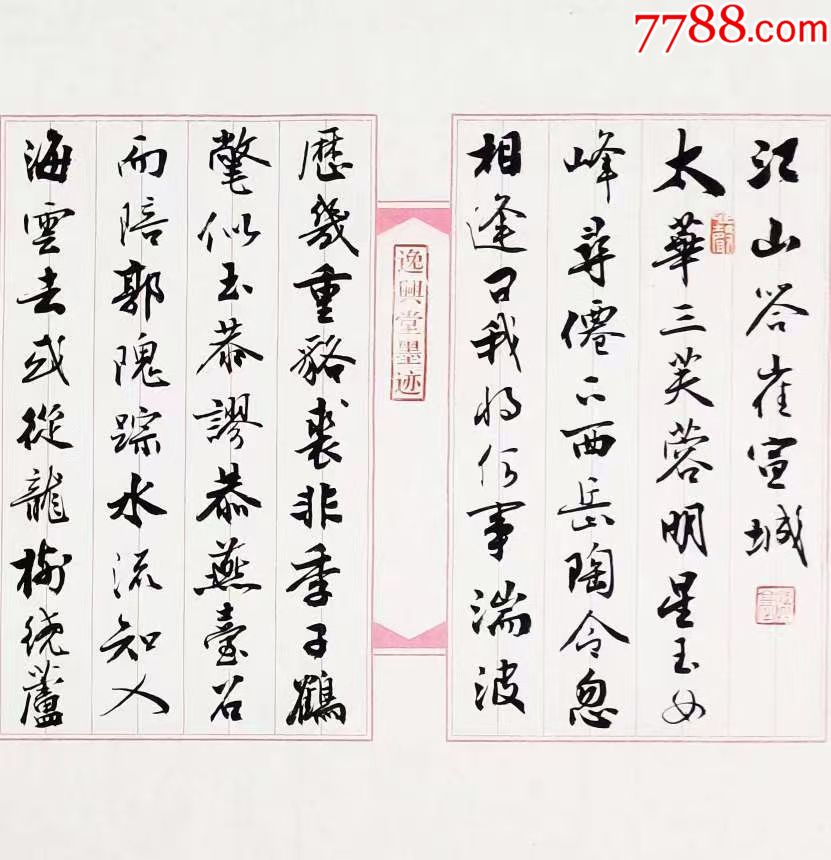 7788.com
江山答崔宣城
太華三芙蓉明星玉女
峰尋僊下西岳陶令忽
相逢问我将何事湍波
逸興堂墨迹
歷幾重貉裘非季子鶴
氅似玉恭謬忝燕臺召
而陪郭隗踪水流知入
海雲去或從龍樹绕蘆